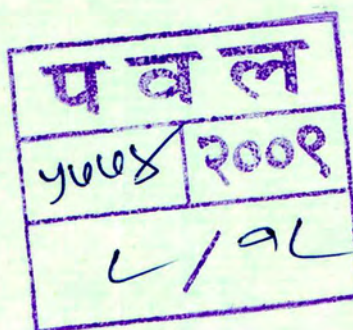 प व ल
५७७४ २००९
८/१८